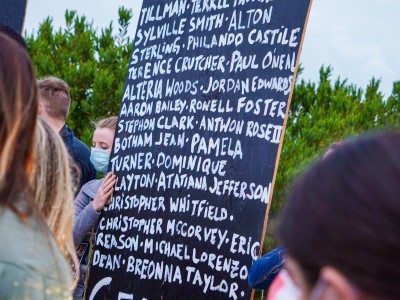 TILLMAN · TERREL THOMAS
SYLVILLE SMITH · ALTON
STERLING · PHILANDO CASTILE
TERENCE CRUTCHER · PAUL O'NEAL
ALTERIA WOODS · JORDAN EDWARDS
AARON BAILEY · RONELL FOSTER
STEPHON CLARK · ANTWON ROSE II
BOTHAM JEAN · PAMELA
TURNER · DOMINIQUE
CLAYTON · ATATIANA JEFFERSON
CHRISTOPHER WHITFIELD ·
CHRISTOPHER MCCORVEY · ERIC
REASON · MICHAEL LORENZO
DEAN · BREONNA TAYLOR ·